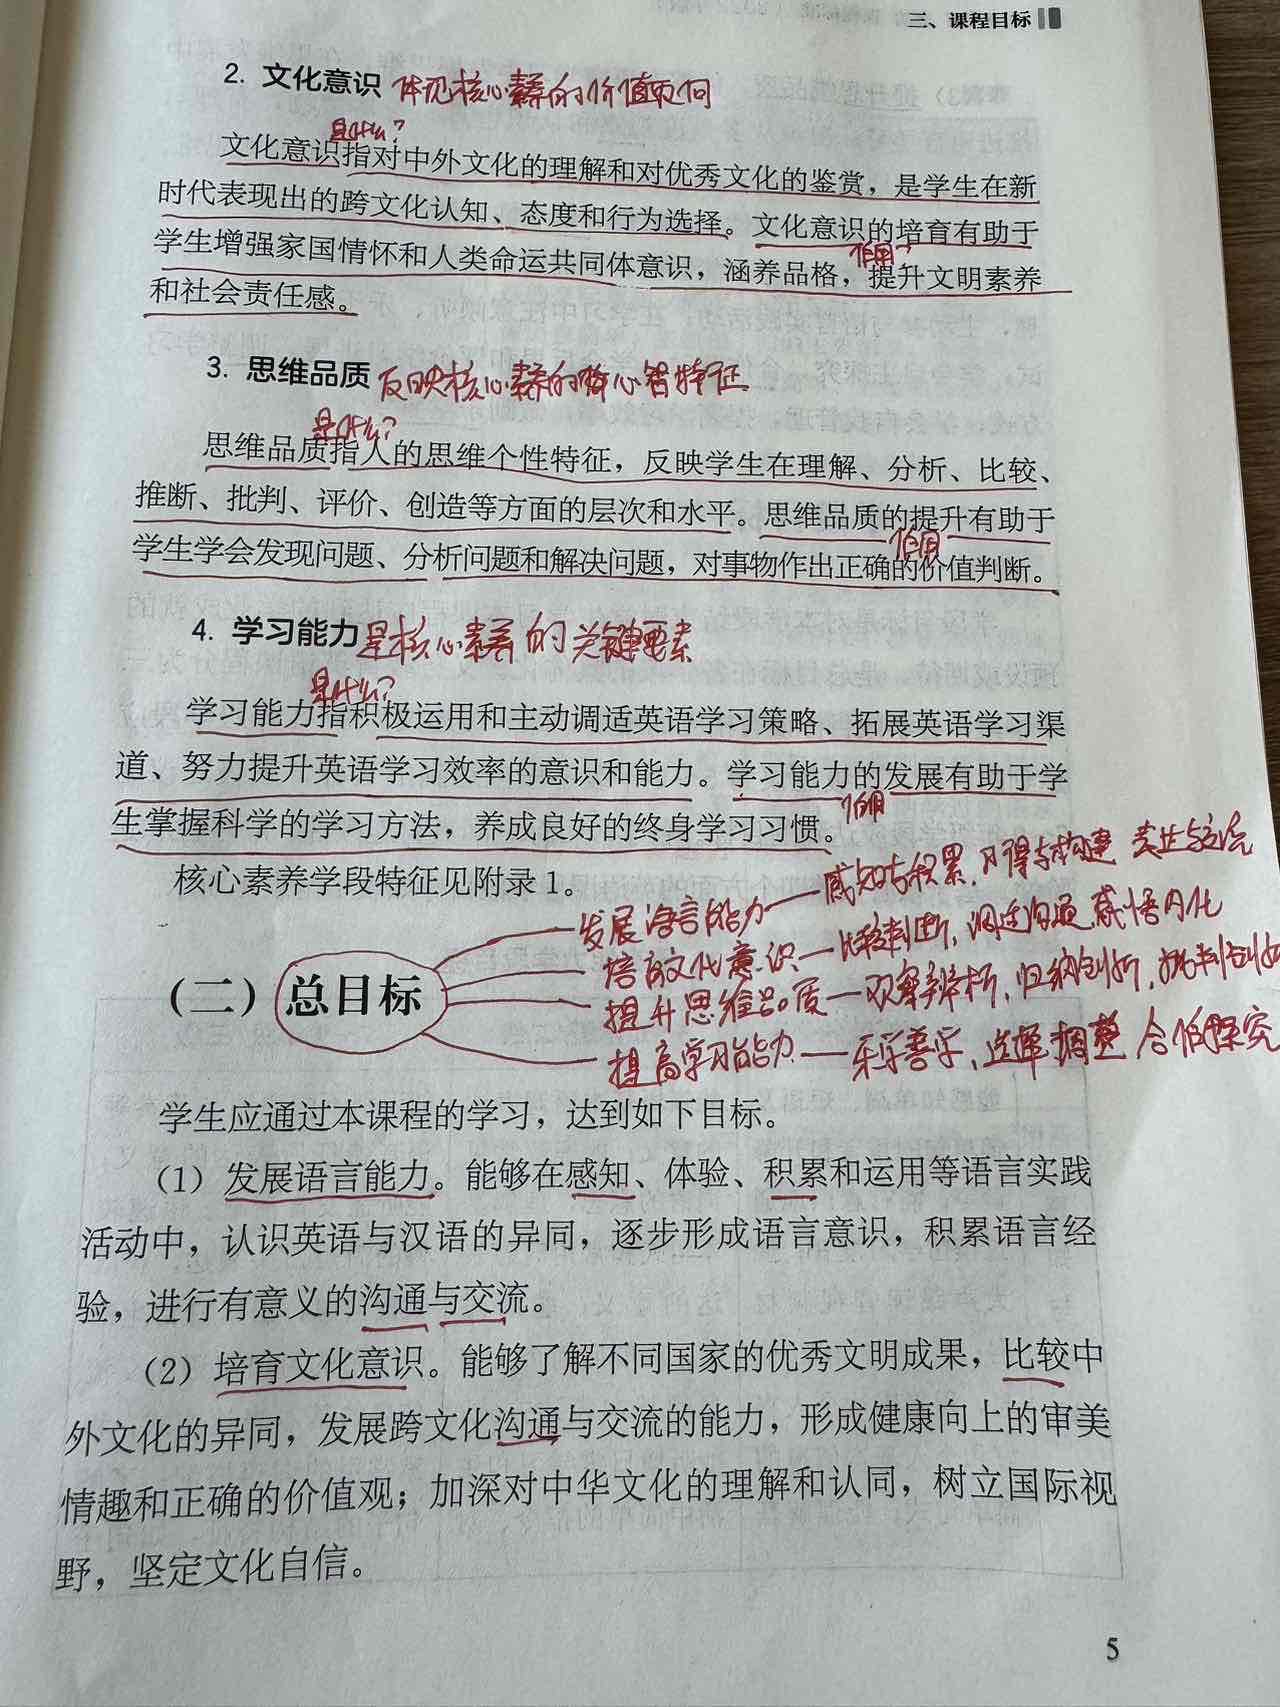 三、课程目标
2. 文化意识 体现核心素养的价值取向
是什么?
文化意识指对中外文化的理解和对优秀文化的鉴赏，是学生在新
时代表现出的跨文化认知、态度和行为选择。文化意识的培育有助于
作用
学生增强家国情怀和人类命运共同体意识，涵养品格，提升文明素养
和社会责任感。
3. 思维品质 反映核心素养的心智特征
是什么?
思维品质指人的思维个性特征，反映学生在理解、分析、比较、
推断、批判、评价、创造等方面的层次和水平。思维品质的提升有助于
作用
学生学会发现问题、分析问题和解决问题，对事物作出正确的价值判断。
4. 学习能力 是核心素养的关键要素
是什么?
学习能力指积极运用和主动调适英语学习策略、拓展英语学习渠
道、努力提升英语学习效率的意识和能力。学习能力的发展有助于学
作用
生掌握科学的学习方法，养成良好的终身学习习惯。
核心素养学段特征见附录1。
发展语言能力—感知与积累,习得与构建 表达与交流
培育文化意识—比较判断,调适沟通 感悟内化
（二）总目标
提升思维品质—观察辨析,归纳创析,批判创
提高学习能力—乐学善学,选择调整 合作探究
学生应通过本课程的学习，达到如下目标。
（1）发展语言能力。能够在感知、体验、积累和运用等语言实践
活动中，认识英语与汉语的异同，逐步形成语言意识，积累语言经
验，进行有意义的沟通与交流。
（2）培育文化意识。能够了解不同国家的优秀文明成果，比较中
外文化的异同，发展跨文化沟通与交流的能力，形成健康向上的审美
情趣和正确的价值观；加深对中华文化的理解和认同，树立国际视
野，坚定文化自信。
5